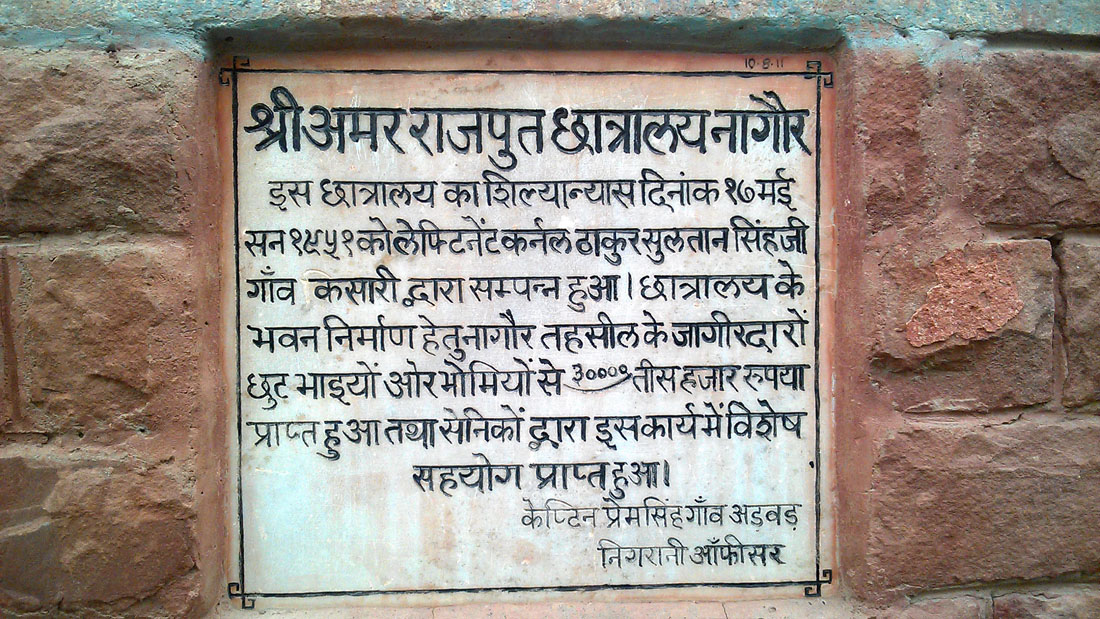 10·8·11
श्री अमर राजपुत छात्रालय नागौर
इस छात्रालय का शिल्यान्यास दिनांक १७ मई
सन १९५१ को लेफ्टिनेंट कर्नल ठाकुर सुलतान सिंह जी
गाँव कसारी द्वारा सम्पन्न हुआ। छात्रालय के
भवन निर्माण हेतु नागौर तहसील के जागीरदारों
छुट भाइयों ओर भोमियों से ३०००० तीस हजार रुपया
प्राप्त हुआ तथा सेनिकों द्वारा इस कार्य में विशेष
सहयोग प्राप्त हुआ।
केप्टिन प्रेमसिंह गाँव अड़वड़
निगरानी ऑफीसर